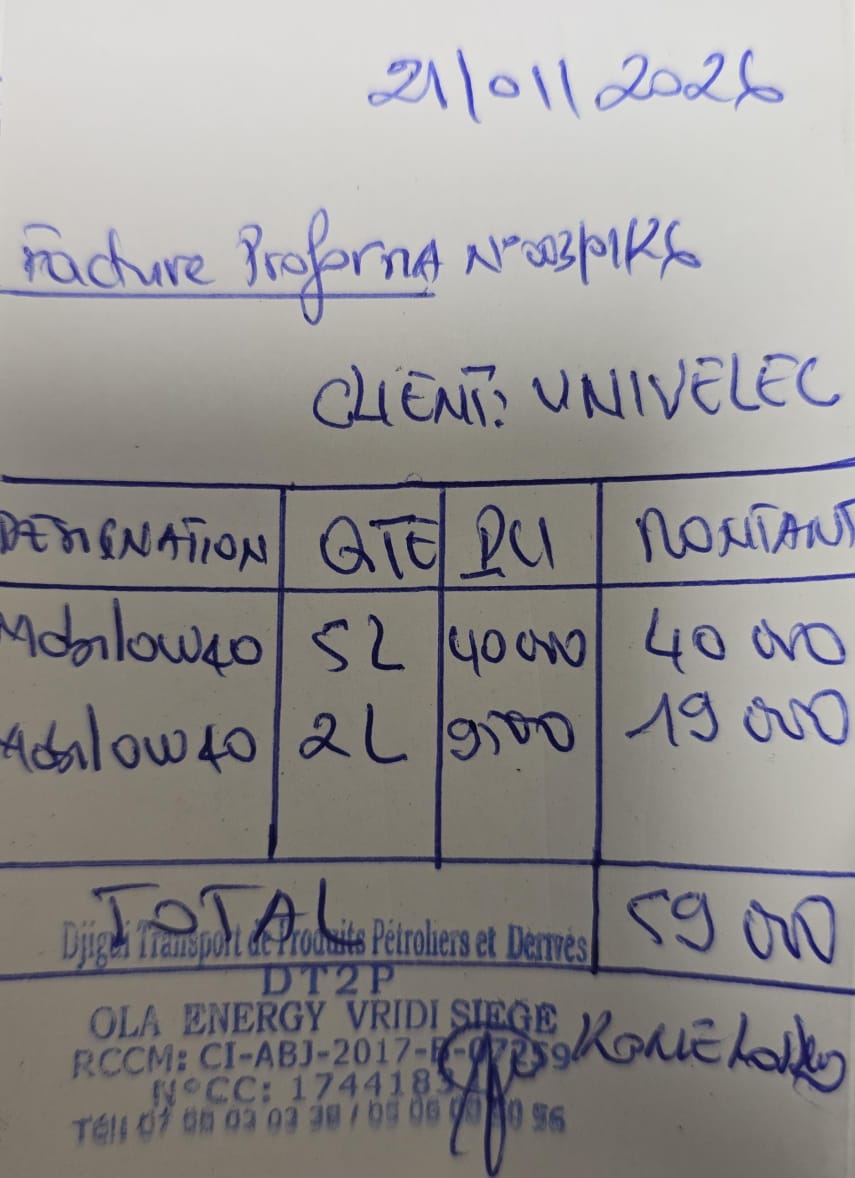 21/01/2026
Facture Proforma N°003/01/26
CLIENT: UNIVELEC
DESIGNATION QTE PU MONTANT
Mobil 0W40 5L 40 000 40 000
Mobil 0W40 2L 9500 19 000
TOTAL 59 000
Djigui Transport de Produits Pétroliers et Dérivés
DT2P
OLA ENERGY VRIDI SIEGE
RCCM: CI-ABJ-2017-
N°CC: 174418
Tél: